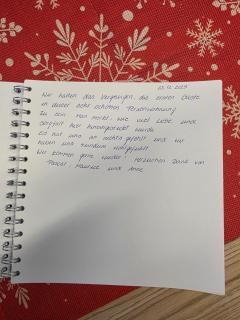 03.12.2023
Wir hatten das Vergnügen, die ersten Gäste
in dieser sehr schönen Ferienwohnung
zu sein. Man merkt, wie viel Liebe und
Sorgfalt hier hineingesteckt wurde.
Es hat uns an nichts gefehlt und wir
haben uns rundum wohlgefühlt.
Wir kommen gerne wieder! Herzlichen Dank von
Pascal, Maurice und Anne